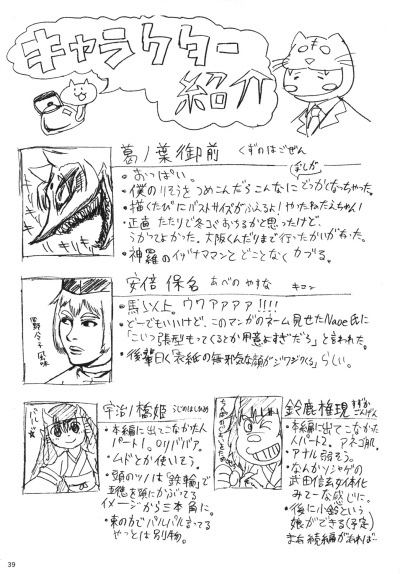 キャラクター
紹介
葛ノ葉御前 くずのはごぜん
・おっぱい。
・僕のりそうをつめこんだらこんなにでっかくなっちゃった。
・描くたびにバストサイズがふえるよ!やったねたえちゃん!
・正直たたりで冬コミおちるかと思ったけど、
うかってよかった。大阪くんだりまで行ったかいがあった。
・神羅のイヅナママンとどことなくカブる。
ギリギリ
安倍保名 あべの やすな
キコン
・馬らい以上。ウワアアアア!!!!
・どーでもいいけど、このマンガのネーム見せたNaoe氏に
「こいつ張型もってくるとか用意よすぎだろ」と言われた。
・後輩曰く「表紙の無邪気な顔がジワジワくる」らしい。
宇治ノ橋姫 うじのはしひめ
・本編に出てこなかった人
パート1。ロリババア。
・ムドとか使いそう。
・頭のツノは「鉄輪」で
五徳を頭にかぶってる
イメージから三本角に。
・東の方でパルパル言ってる
やつとは別物。
鈴鹿権現 すずかごんげん
・本編に出てこなかった人
パート2。アネゴ肌。
・アナル弱そう。
・なんかソシャゲの
武田信玄女体化
みてーな感じに。
・後に小鈴という
娘ができる(予定)
まあ続編があれば…
39